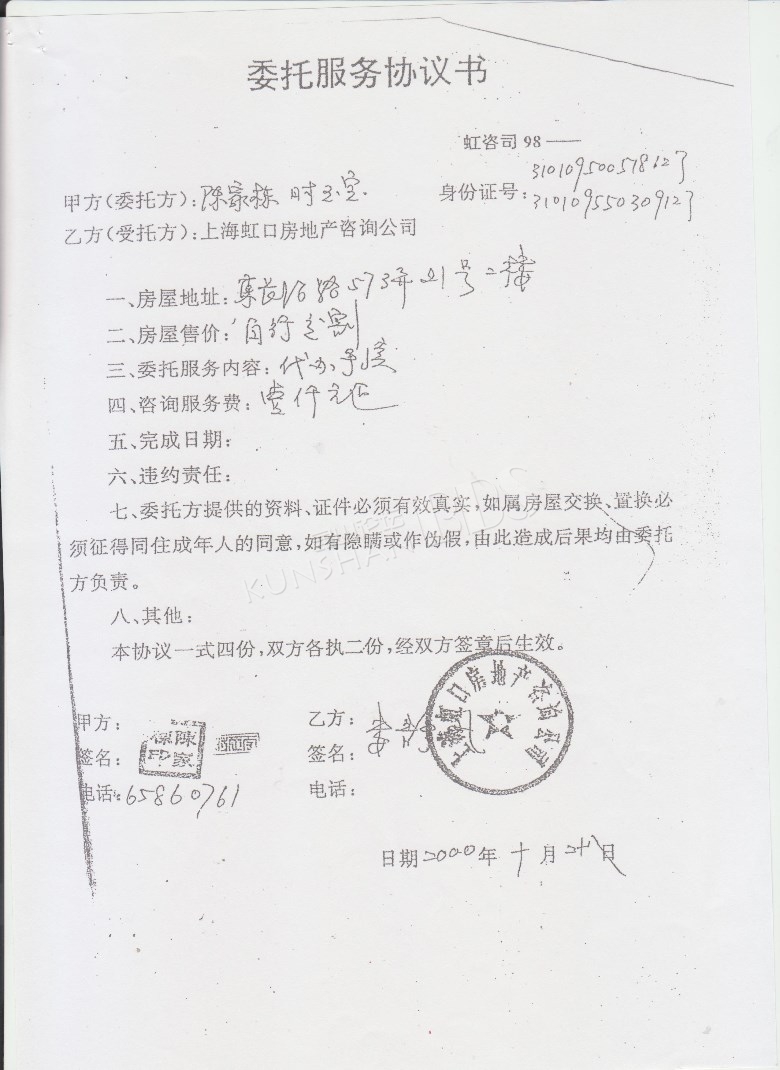 委托服务协议书
虹咨司 98 ——
310109500578127
甲方(委托方):陈家栋 时玉宝
身份证号:310109550309127
乙方(受托方):上海虹口房地产咨询公司
一、房屋地址:东 路573弄21号二楼
二、房屋售价:自行交割
三、委托服务内容:代办手续
四、咨询服务费:壹仟元正
五、完成日期:
六、违约责任:
七、委托方提供的资料、证件必须有效真实,如属房屋交换、置换必
须征得同住成年人的同意,如有隐瞒或作伪假,由此造成后果均由委托
方负责。
KUNSHAN
八、其他:
本协议一式四份,双方各执二份,经双方签章后生效。
甲方: 乙方:
签名: 签名:
上海虹口房地产咨询公司
电话:65860761 电话:
日期2000年十月廿八日